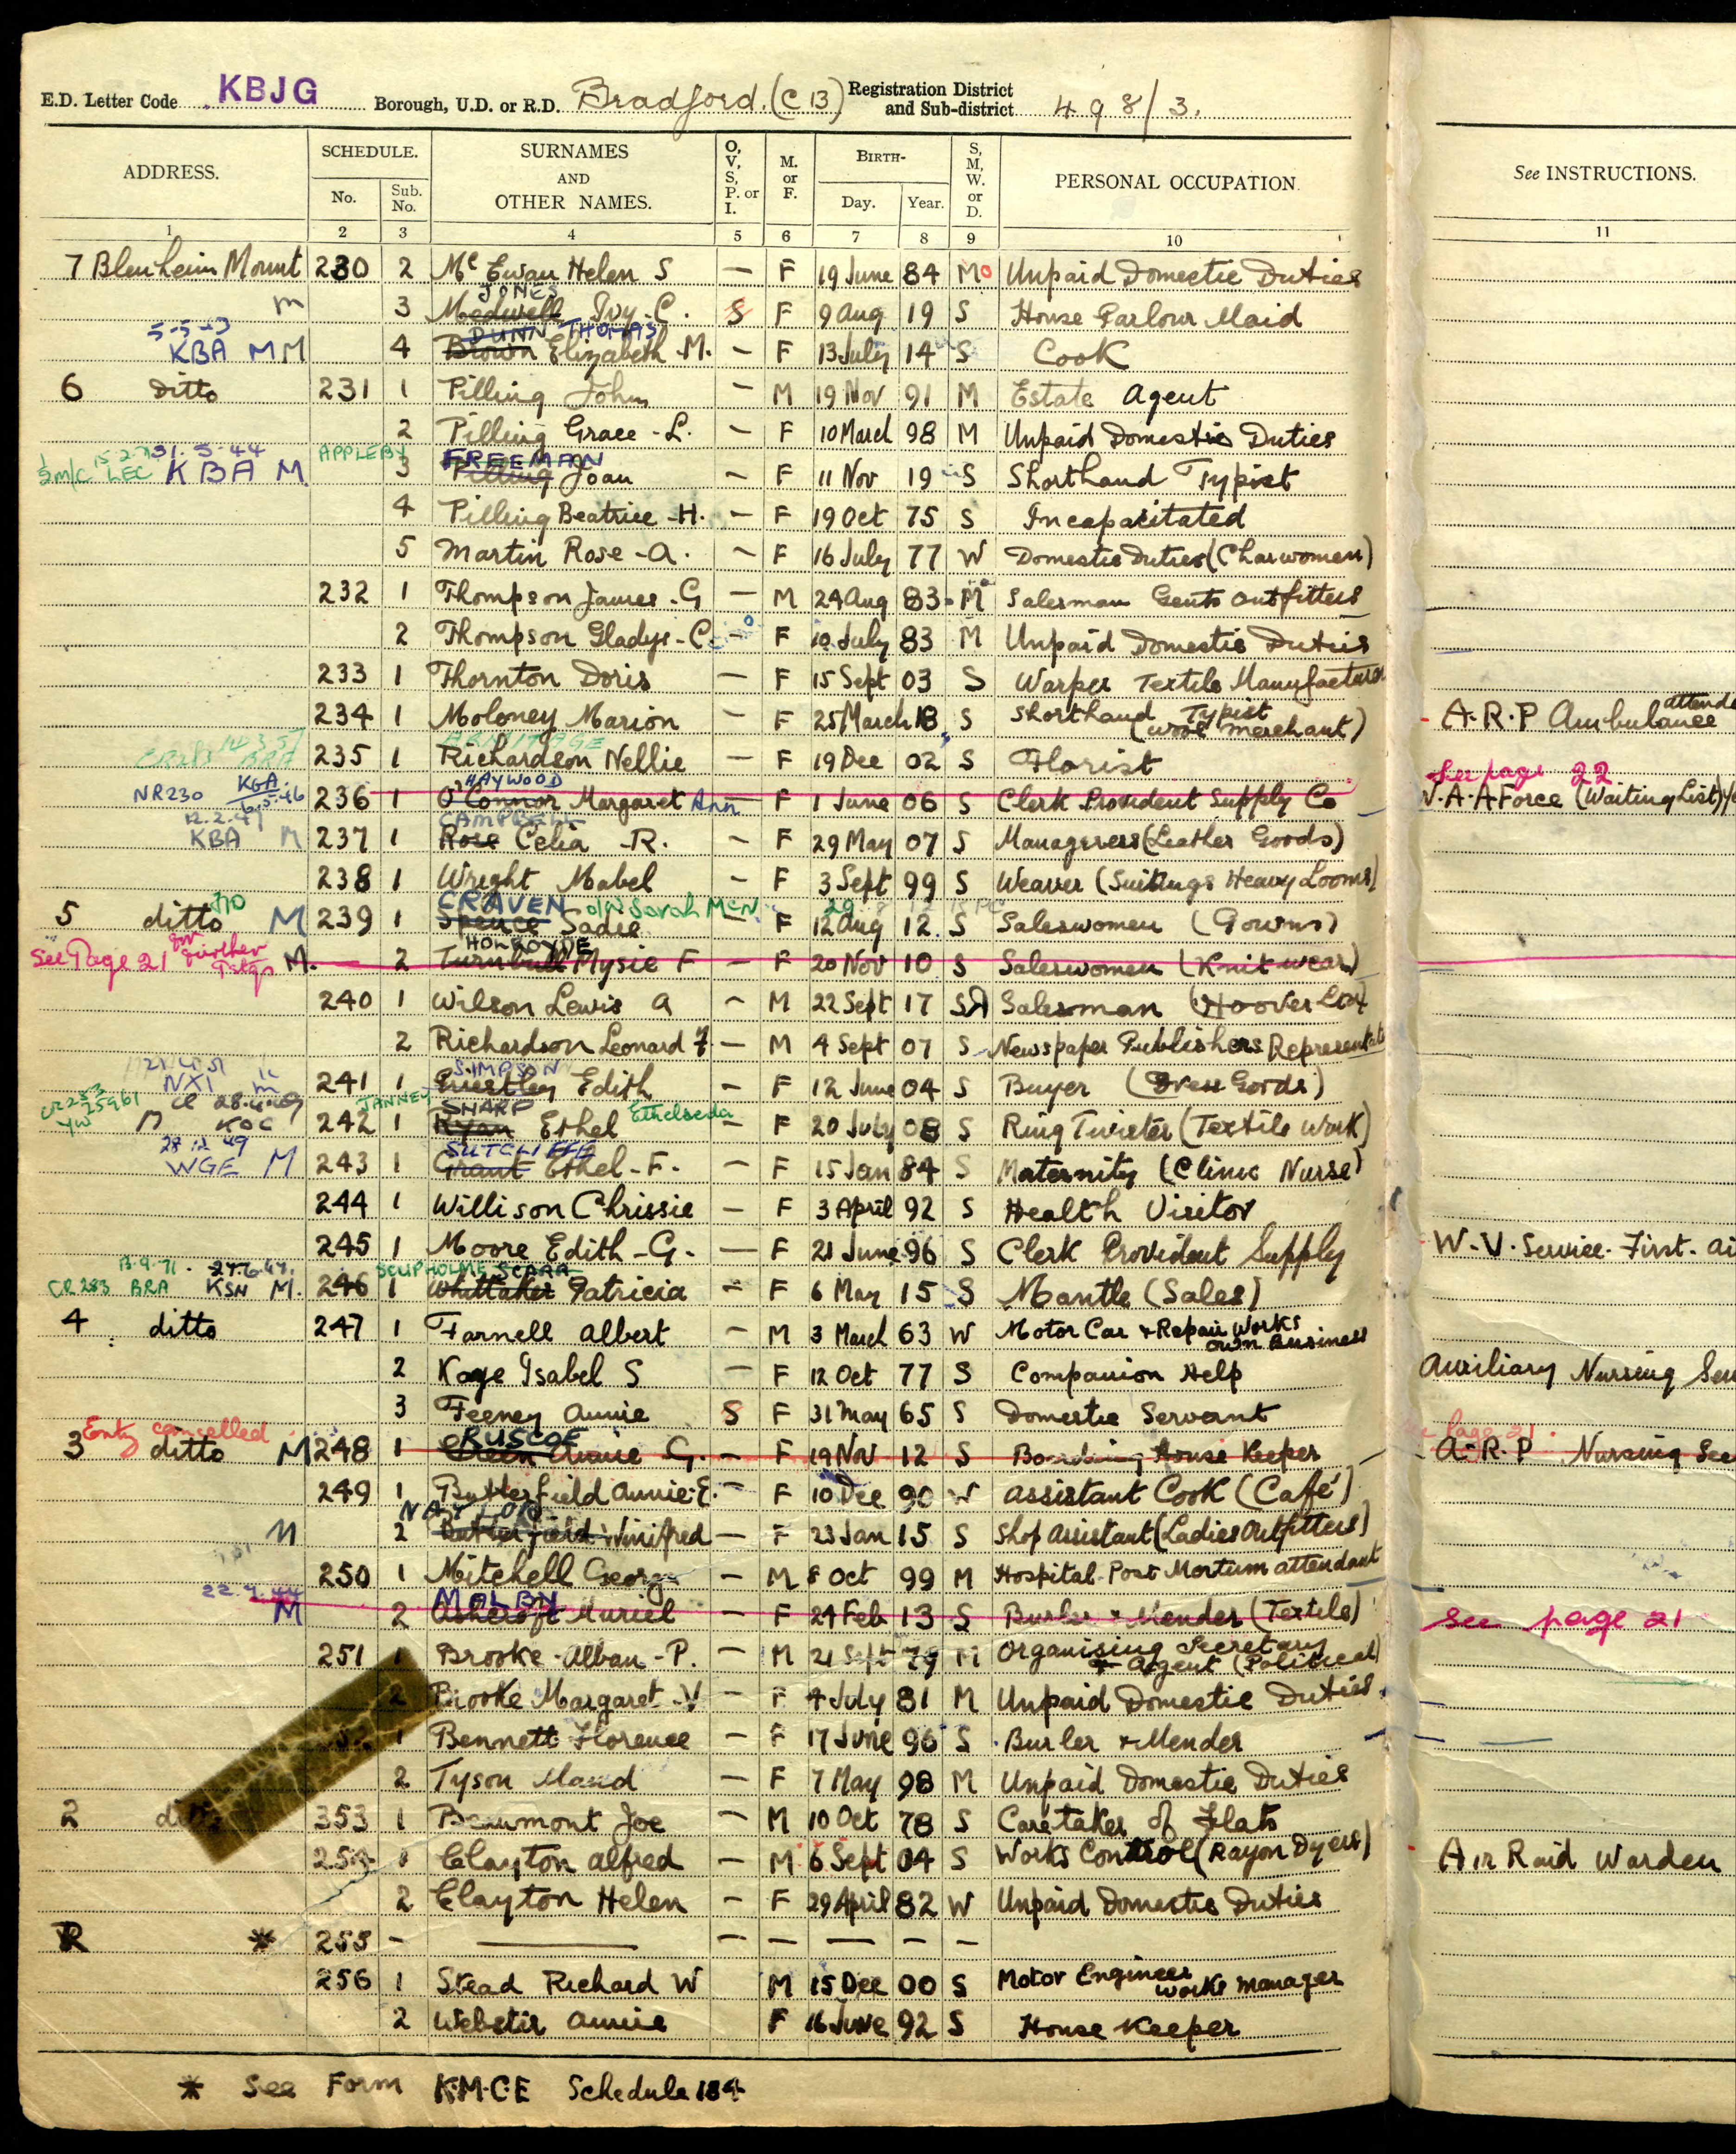 E.D. Letter Code KBJG Borough, U.D. or R.D. Bradford. (C 13) Registration District and Sub-district 498/3.
ADDRESS. SCHEDULE. No. Sub. No. SURNAMES AND OTHER NAMES. O, V, S, P. or I. M. or F. BIRTH- Day. Year. S, M, W. or D. PERSONAL OCCUPATION. See INSTRUCTIONS.
1 2 3 4 5 6 7 8 9 10 11
7 Blenheim Mount 230 2 Mc Ewan Helen S — F 19 June 84 M o Unpaid Domestic Duties
JONES
m 3 Medwell Ivy-C. S F 9 Aug 19 S House Parlour Maid
5-5-43 DUNN THOMAS
KBA M M 4 Brown Elizabeth-M. — F 13 July 14 S Cook
6 Ditto 231 1 Pilling John — M 19 Nov 91 M Estate Agent
2 Pilling Grace-L. — F 10 March 98 M Unpaid Domestic Duties
31.5.44 APPLEBY FREEMAN
LEC KBA M 3 Pilling Joan — F 11 Nov 19 S Shorthand Typist
4 Pilling Beatrice-H. — F 19 Oct 75 S Incapacitated
5 Martin Rose-A. — F 16 July 77 W Domestic Duties (Charwomen)
232 1 Thompson James-G — M 24 Aug 83 M Salesman Gents Outfitters
2 Thompson Gladys-C. — F 10 July 83 M Unpaid Domestic Duties
233 1 Thornton Doris — F 15 Sept 03 S Warper Textile Manufacturer
234 1 Moloney Marion — F 25 March 18 S Shorthand Typist (Wool Merchant) A.R.P Ambulance attend
235 1 Richardson Nellie — F 19 Dec 02 S Florist
See page 22
HAYWOOD
NR230 KGA 6.5.46 236 1 O'Connor Margaret Ann — F 1 June 06 S Clerk Provident Supply Co W.A.A Force (Waiting List)
12.2.47 CAMPBELL
KBA M 237 1 Rose Celia-R. — F 29 May 07 S Manageress (Leather Goods)
238 1 Wright Mabel — F 3 Sept 99 S Weaver (Suitings Heavy Looms)
CRAVEN o/w Sarah McN. 29
5 ditto M 239 1 Spence Sadie — F 12 Aug 12 S Saleswomen (Gowns)
See Page 21 for further HOLROYDE
M. 2 Turnbull Mysie F — F 20 Nov 10 S Saleswomen (Knitwear)
240 1 Wilson Lewis A — M 22 Sept 17 S Salesman (Hoover Ltd)
2 Richardson Leonard F — M 4 Sept 07 S Newspaper Publishers Representative
NXI m SIMPSON
241 1 Priestley Edith — F 12 June 04 S Buyer (Dress Goods)
TANNEY SHARP Ethelseda
242 1 Ryan Ethel — F 20 July 08 S Ring Twister (Textile Work)
28 12 49 SUTCLIFFE
WGE M 243 1 Grant Ethel-F. — F 15 Jan 84 S Maternity (Clinic Nurse)
244 1 Willison Chrissie — F 3 April 92 S Health Visitor
245 1 Moore Edith-G. — F 21 June 96 S Clerk Provident Supply W.V. Service. First. Ai
13.9.71.
CR 283 BRA KSN M. 246 1 Whittaker Patricia — F 6 May 15 S Mantle (Sales)
4 ditto 247 1 Farnell Albert — M 3 March 63 W Motor Car & Repair Works own Business
2 Kaye Isabel S — F 12 Oct 77 S Companion Help Auxiliary Nursing Ser
3 Feeney Annie S F 31 May 65 S Domestic Servant
Entry cancelled RUSCOE Page 21.
3 ditto M 248 1 Green Annie G. — F 19 Nov 12 S Boarding House Keeper A.R.P Nursing Se
249 1 Butterfield Annie-E. — F 10 Dec 90 W Assistant Cook (Café)
NAYLOR
M 2 Butterfield Winifred — F 23 Jan 15 S Shop Assistant (Ladies Outfitters)
250 1 Mitchell George — M 8 Oct 99 M Hospital Post Mortum attendant
M 2 Ashcroft Muriel — F 24 Feb 13 S Burler & Mender (Textile) See page 21
251 1 Brooke-Alban-P. — M 21 Sept 79 M Organising Secretary & Agent (Political)
2 Brooke Margaret-V — F 4 July 81 M Unpaid Domestic Duties.
1 Bennett Florence — F 17 June 96 S Burler & Mender
2 Tyson Maud — F 7 May 98 M Unpaid Domestic Duties
2 ditto 353 1 Beaumont Joe — M 10 Oct 78 S Caretaker of Flats
254 1 Clayton Alfred — M 6 Sept 04 S Works Control (Rayon Dyers) Air Raid Warden
2 Clayton Helen — F 29 April 82 W Unpaid Domestic Duties
R * 255 - — — — — — —
256 1 Stead Richard W M 15 Dec 00 S Motor Engineer Works Manager
2 Webster Annie F 16 June 92 S House Keeper
* See Form K.M.C.E Schedule 184